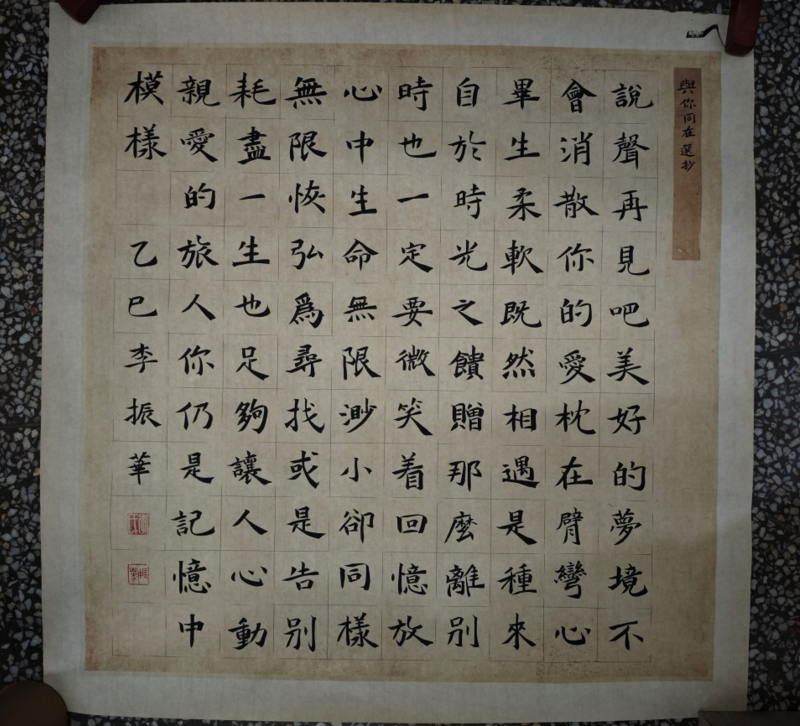 與你同在選抄
說聲再見吧美好的夢境不
會消散你的愛枕在臂彎心
畢生柔軟既然相遇是種來
自於時光之饋贈那麼離別
時也一定要微笑着回憶放
心中生命無限渺小卻同樣
無限恢弘爲尋找或是告別
耗盡一生也足夠讓人心動
親愛的旅人你仍是記憶中
模樣 乙巳李振華